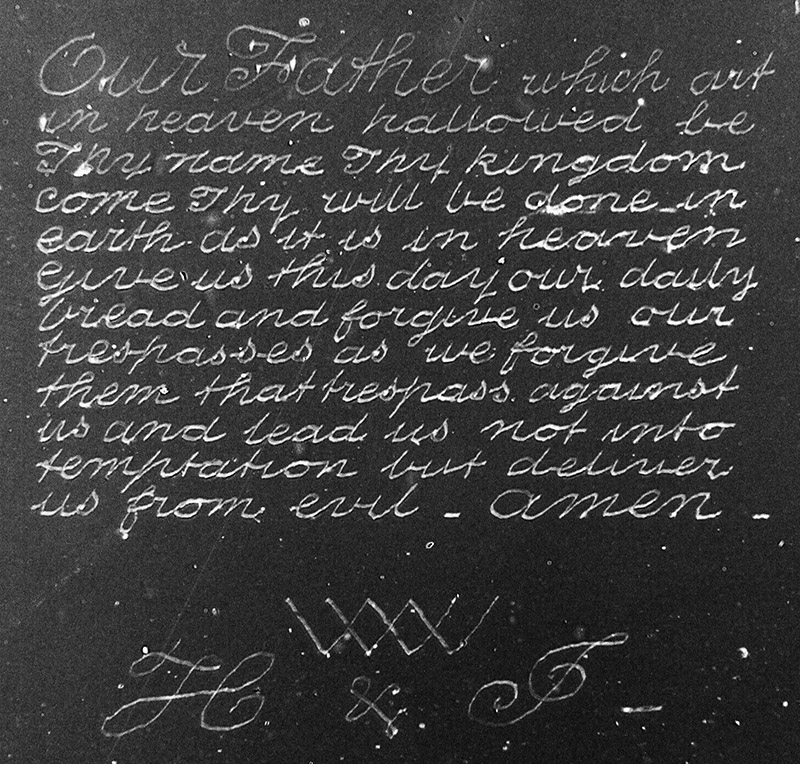 Our Father which art
in heaven hallowed be
Thy name Thy kingdom
come Thy will be done in
earth as it is in heaven
give us this day our daily
bread and forgive us our
trespasses as we forgive
them that trespass against
us and lead us not into
temptation but deliver
us from evil - amen -
H & F -